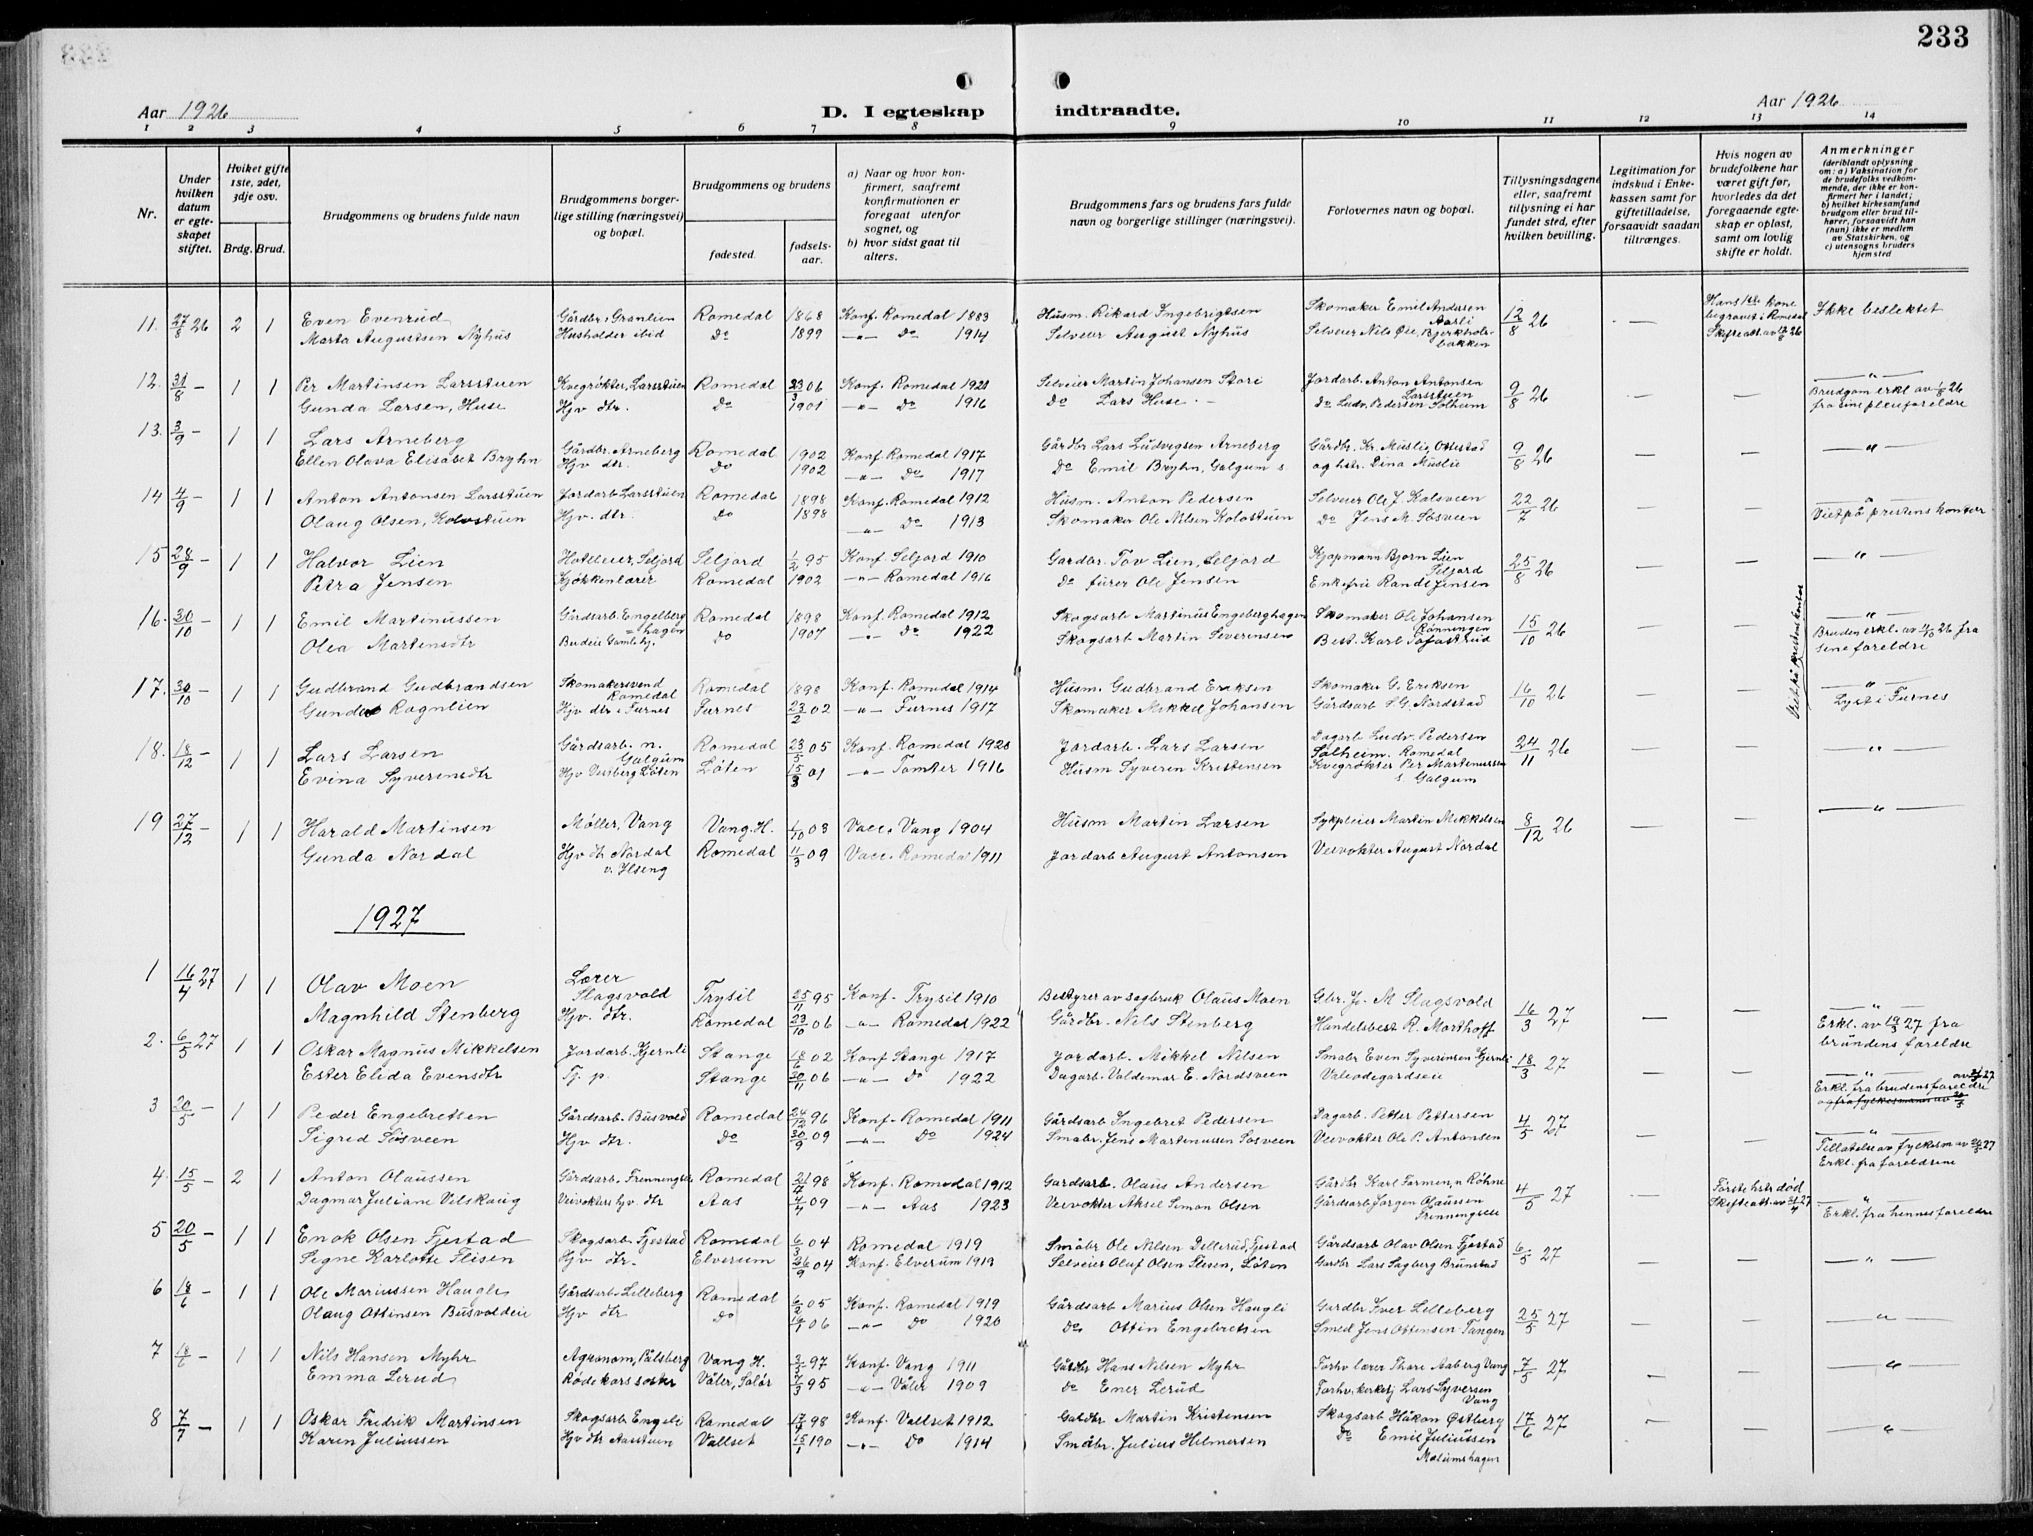 233
Aar 1926
D. I egteskap indtraadte.
Aar 1926
1 2 3 4 5 6 7 8 9 10 11 12 13 14
Nr.
Under hvilken datum er egteskapet stiftet.
Hviket gifte 1ste, 2det, 3dje osv.
Brdg. Brud.
Brudgommens og brudens fulde navn
Brudgommens borgerlige stilling (næringsvei) og bopæl.
Brudgommens og brudens
fødested. fødselsaar.
a) Naar og hvor konfirmert, saafremt konfirmationen er foregaat utenfor sognet, og
b) hvor sidst gaat til alters.
Brudgommens fars og brudens fars fulde navn og borgerlige stillinger (næringsvei).
Forlovernes navn og bopæl.
Tillysningsdagene eller, saafremt tillysning ei har fundet sted, efter hvilken bevilling.
Legitimation for indskud i Enkekassen samt for giftetilladelse, forsaavidt saadan tiltrænges.
Hvis nogen av brudefolkene har været gift før, hvorledes da det foregaaende egteskap er opløst, samt om lovlig skifte er holdt.
Anmerkninger (deriblandt oplysning om: a) Vaksination for de brudefolks vedkommende, der ikke er konfirmert her i landet; b) hvilket kirkesamfund brudgom eller brud tilhører, forsaavidt han (hun) ikke er medlem av Statskirken, og c) utensogns bruders hjemsted
11. 27/8 26 2 1 Even Evenrud Gårdbr. Grønlien Romedal 1868 Konf. Romedal 1883 Husm. Rikard Ingebrigtsen Skomaker Emil Andersen Aarli 12/8 26 — Hans 1ste kone begravet i Romedal Skifteatt. av Ikke beslektet
Marta Augustsen Nyhus Husholder ibid Do 1899 —"— Do 1914 Selveier August Nyhus Selveier Nils Øie, Bjerkholsbakken
12. 31/8 — 1 1 Per Martinsen Larsstuen Kvegrøkter, Larsstuen Romedal 23/3 06 Konf. Romedal 1921 Selveier Martin Johansen Stori Jordarb. Anton Antonsen Larsstuen 9/8 26 — — —"—
Gunda Larsen, Huse Hjv dtr. Do 1901 —"— Do 1916 Do Lars Huse Do Ludv. Pedersen Solheim Brudgom erkl av 1/8 26 fra sine pleieforeldre
13. 3/9 — 1 1 Lars Arneberg Gårdbr. Arneberg Romedal 1902 Konf. Romedal 1917 Gårdbr Lars Ludvigsen Arneberg Gårdbr. Kr. Muslie Ottestad 9/8 26 — — —"—
Ellen Olava Elisabet Bryhn Hjv dtr. Do 1902 —"— Do 1917 Do Emil Bryhn, Galgum s. og hstr. Dina Muslie
14 4/9 — 1 1 Anton Antonsen Larsstuen Jordarb Larsstuen Romedal 1898 Konf. Romedal 1912 Husm. Anton Pedersen Selveier Ole J. Kolsveen 22/7 26 — — —"—
Olaug Olsen, Kolostuen Hjv. dtr. Do 1898 —"— Do 1913 Skomaker Ole Nilsen Kolostuen Do Jens M. Søsveen Viet på prestens kontor
15 28/9 1 1 Halvor Lien Hoteleier, Seljord Seljord 1/2 95 Konf Seljord 1910 Gardbr. Tov Lien, Seljord Kjøpmann Bjørn Lien Seljord 25/8 26 — — —"—
Petra Jensen Kjøkkenlærer Romedal 1902 —"— Romedal 1916 Do fürer Ole Jensen Enkefru Randi Jensen
16. 30/10 — 1 1 Emil Martinussen Gårdsarb. Engelberghagen Romedal 1898 Konf. Romedal 1912 Skogsarb Martinus Engeberghagen Skomaker Ole Johansen Rønningen 15/10 26 — — —"—
Olea Martensdtr Budeie Gamleby. Do 1907 —"— Do 1922 Skogsarb Martin Severinsen Best. Karl Tofastrud Bruden erkl. av 4/10 26 fra sine foreldre
Viet på prestens kontor
17. 30/10 — 1 1 Gudbrand Gudbrandsen Skomakersvend Romedal Romedal 1898 Konf. Romedal 1914 Husm. Gudbrand Eriksen Skomaker G. Eriksen 16/10 26 — — —"—
Gunda Ragnlien Hjv dtr. Furnes Furnes 23/2 02 —"— Furnes 1917 Skomaker Mikkel Johansen Gårdsarb S. G. Nordstad Lyst i Furnes
18. 18/12 — 1 1 Lars Larsen Gårdsarb. n. Galgum Romedal 23/5 05 Konf. Romedal 1920 Jordarb. Lars Larsen Dagarb Ludv. Pedersen Solheim. Romedal 24/11 26 — — —"—
Evina Syverensdtr Hjv Vestberg Løten Løten 15/3 01 —"— Tomter 1916 Husm Syveren Kristensen Kvegrøkter Per Martinussen s. Galgum
19 27/12 — 1 1 Harald Martinsen Møller, Vang Vang. H. 1/10 03 Vacc. Vang 1904 Husm Martin Larsen Sykpleier Martin Mikkelsen 8/12 26 — — —"—
Gunda Nordal Hjv dtr Nordal v. Ilseng Romedal 11/3 09 Vacc. Romedal 1911 Jordarb August Antonsen Veivokter August Nordal
1927
1 16/4 27 1 1 Olav Moen Lærer Slagsvold Trysil 25/11 95 Konf. Trysil 1910 Bestyrer av sagbruk Olaus Moen Gbr. Jo. M Slagsvold 16/3 27 — — —"—
Magnhild Stenberg Hjv. dtr. Romedal 23/10 06 —"— Romedal 1922 Gårdbr. Nils Stenberg Handelsbest R. Morthoff Erkl. av 19/3 27 fra brundens foreldre
2. 6/5 27 1 1 Oskar Magnus Mikkelsen Jordarb. Kjernli Stange 18/6 02 Konf Stange 1917 Jordarb. Mikkel Nilsen Småbr Even Syverinsen Kjernli 18/3 27 — — —"—
Ester Elida Evensdtr Tj. p. Stange 20/11 06 —"— Do 1922 Dagarb. Valdemar E. Nordsveen Valeødegårdseie Erkl. fra brudens foreldre
3 20/5 — 1 1 Peder Engebretsen Gårdsarb. Busvold Romedal 24/12 96 Konf. Romedal 1911 Gårdsarb Ingebret Pedersen Dagarb. Petter Pettersen 4/5 27 — — —"—
Sigrid Søsveen Hjv dtr. Do 30/9 09 —"— Do 1924 Småbr. Jens Martinussen Søsveen Veivokter Ole P. Antonsen Tillatelse av fylkesm av 27 Erkl. fra foreldrene
4. 15/5 — 2 1 Anton Olaussen Gårdsarb. Frenningeie Romedal 98 Konf. Romedal 1912 Gårdsarb. Olaus Andersen Gårdbr Karl Farmen, n Røhne 4/5 27 — Første hstr død Skifteatt. av 27 —"—
Dagmar Juliane Vilskaug Veivokters hjv dtr Aas 4/4 09 —"— Aas 1923 Veivokter Aksel Simon Olsen Gårdsarb Jørgen Olaussen Frenningeie Erkl. fra hennes foreldre
5 20/5 — 1 1 Enok Olsen Fjestad Skogsarb. Fjestad Romedal 6/3 04 Romedal 1919 Småbr Ole Nilsen Dellerud, Fjestad Gårdsarb Olav Olsen Fjestad 6/5 27 — — —"—
Signe Karlotte Flisen Hjv dtr. Elverum 26/9 04 Konf. Elverum 1919 Selveier Oluf Olsen Flisen, Løten Gardbr Lars Sagberg Brunstad
6 18/6 — 1 1 Ole Mariussen Haugli Gårdsarb. Lilleberg Romedal 6/2 05 Konf. Romedal 1919 Gårdsarb Marius Olsen Haugli Gardbr Iver Lilleberg 25/5 27 — — —"—
Olaug Ottinsen Busvoldeie Hjv dtr Do 16/1 06 —"— Do 1920 Do Ottin Engebretsen Smed Jens Ottensen Tangen
7 18/6 — 1 1 Nils Hansen Myhr Agronom, Pålsberg Vang H. 97 Konf. Vang 1911 Gårdbr Hans Nilsen Myhr Forhv. lærer Thore Aaberg Vang 7/5 27 — — —"—
Emma Lerud Røde kors søster Våler, Solør 95 —"— Våler 1909 Do Ener Lerud Forhv. kirkesj Lars Syversen Vang
8 7/7 — 1 1 Oskar Fredrik Martinsen Skogsarb Engeli Romedal 98 Konf. Vallset 1912 Gårdbr Martin Kristensen Skogsarb Håkon Østberg 17/6 27 — — —"—
Karen Juliussen Hjv dtr Aasstuen Vallset 15/1 190 —"— Do 1914 Småbr. Julius Hilmersen Do Emil Juliussen Malumshagen